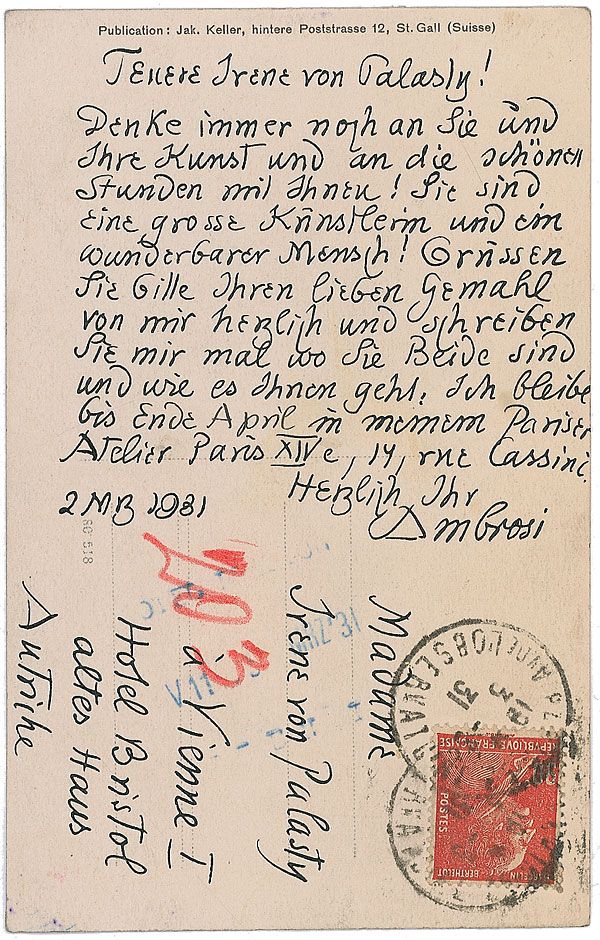 Publication: Jak. Keller, hintere Poststrasse 12, St. Gall (Suisse)
Teuere Irene von Palasty!
Denke immer noch an Sie und
Ihre Kunst und an die schönen
Stunden mit Ihnen! Sie sind
eine grosse Künstlerin und ein
wunderbarer Mensch! Grüssen
Sie bitte Ihren lieben Gemahl
von mir herzlich und schreiben
Sie mir mal wo Sie Beide sind
und wie es Ihnen geht. Ich bleibe
bis Ende April in meinem Pariser
Atelier Paris XIVe, 14, rue Cassini.
Herzlich Ihr
Ambrosi
1931
80 518
203
Madame
Irene von Palasty
à Vienne I
Hotel Bristol
altes Haus
Autriche
V11
MRZ '31
OBSERVAT
12
3
31
REPUBLIQUE FRANÇAISE
POSTES
MARCELIN BERTHELOT